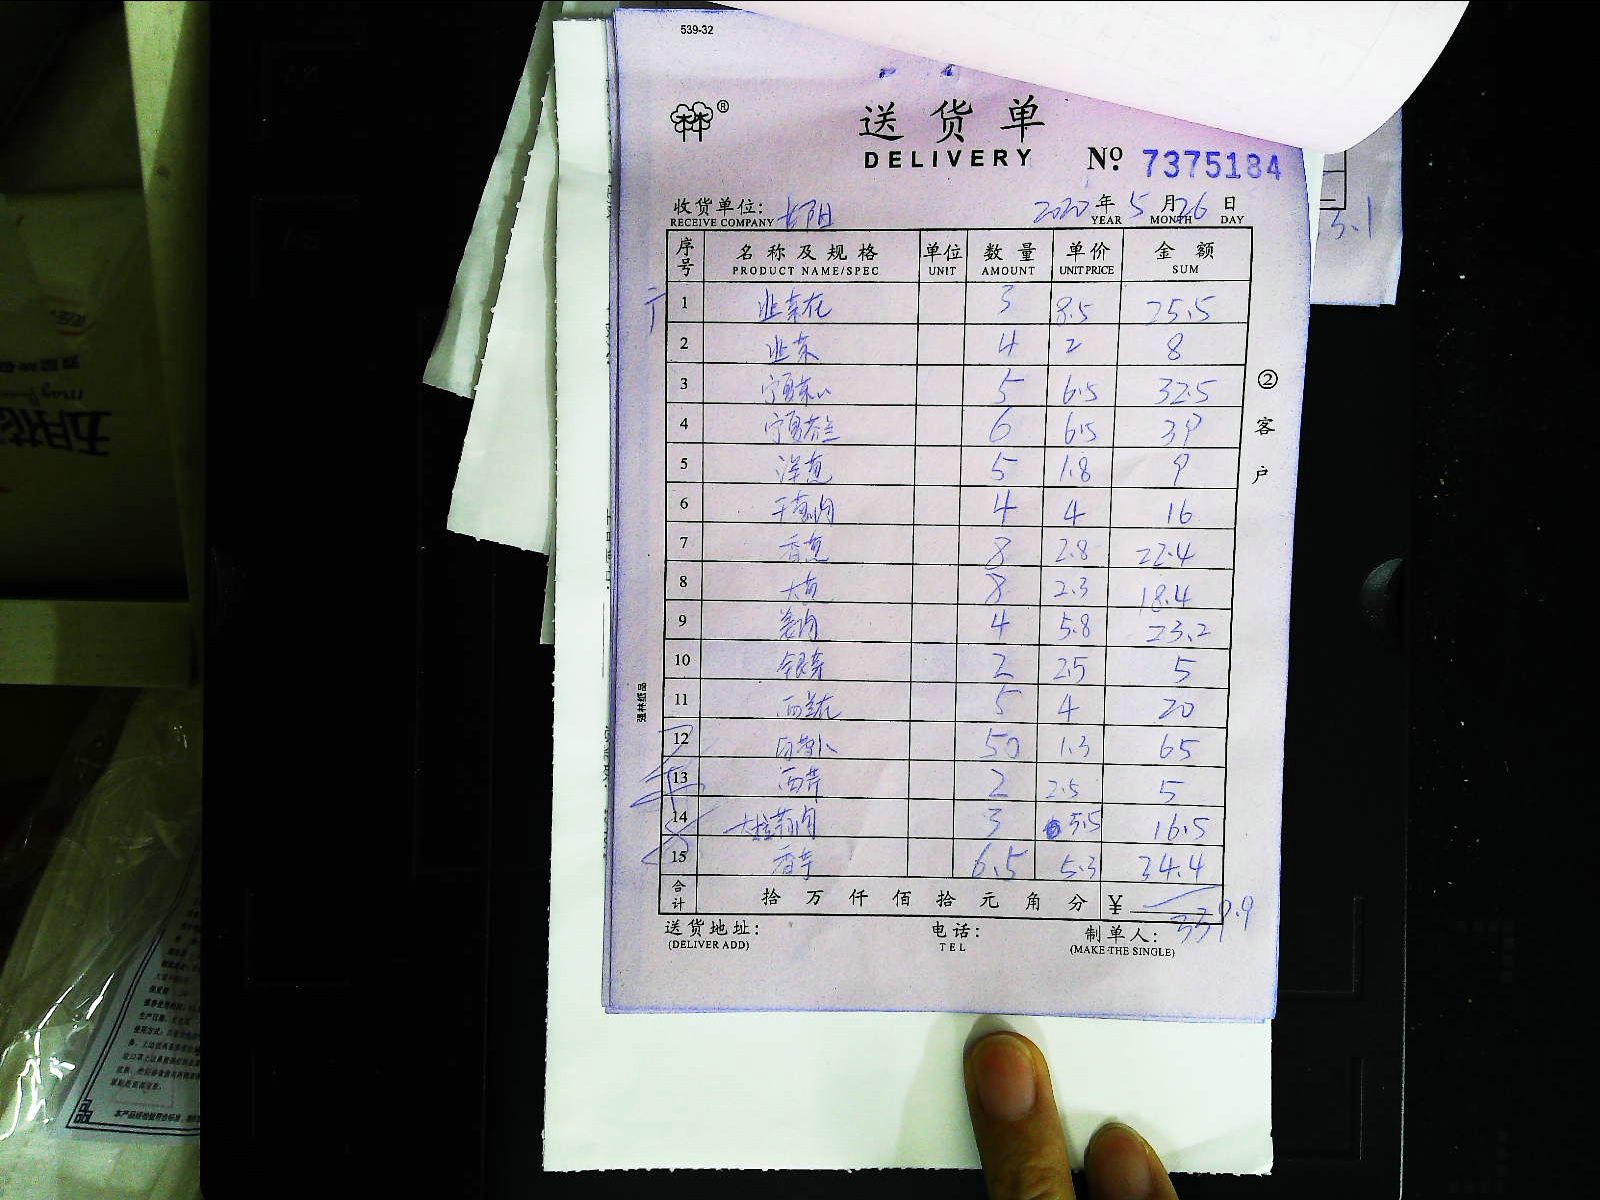 539-32
®
送货单
DELIVERY
№ 7375184
收货单位:
RECEIVE COMPANY
2020 年 5 月 26 日
YEAR MONTH DAY
3.1
序号 名称及规格 单位 数量 单价 金额
PRODUCT NAME/SPEC UNIT AMOUNT UNIT PRICE SUM
1 韭菜花 3 8.5 25.5
2 韭菜 4 2 8
3 宁夏菜心 5 6.5 32.5
4 宁夏芥兰 6 6.5 39
5 洋葱 5 1.8 9
6 干葱肉 4 4 16
7 香葱 8 2.8 22.4
8 大葱 8 2.3 18.4
9 姜肉 4 5.8 23.2
10 银芽 2 2.5 5
11 西兰花 5 4 20
12 白萝卜 50 1.3 65
13 西芹 2 2.5 5
14 大蒜肉 3 5.5 16.5
15 香芋 6.5 5.3 34.4
合计 拾 万 仟 佰 拾 元 角 分 ¥ 339.9
送货地址: 电话: 制单人:
(DELIVER ADD) TEL (MAKE THE SINGLE)
② 客户
强林纸品